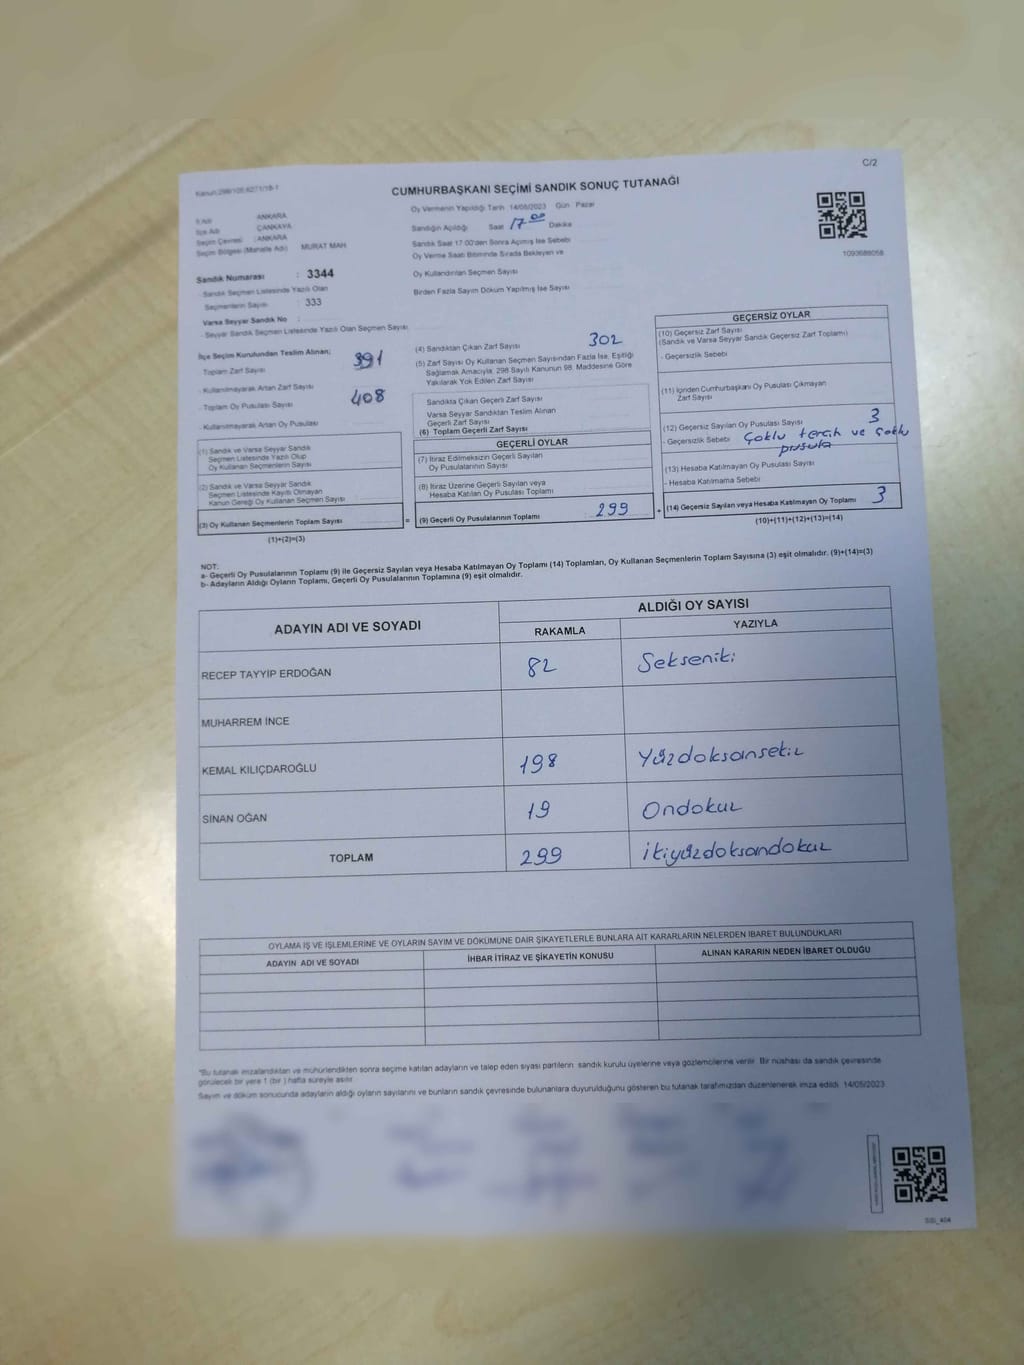 C/2
Kanun:298/105,6271/18-1
CUMHURBAŞKANI SEÇİMİ SANDIK SONUÇ TUTANAĞI
İl Adı : ANKARA
İlçe Adı : ÇANKAYA
Seçim Çevresi : ANKARA
Seçim Bölgesi (Mahalle Adı) : MURAT MAH
Oy Vermenin Yapıldığı Tarih 14/05/2023 Gün Pazar
Sandığın Açıldığı Saat 17.00 Dakika
Sandık Saat 17.00'den Sonra Açılmış İse Sebebi
Oy Verme Saati Bitiminde Sırada Bekleyen ve
Oy Kullandırılan Seçmen Sayısı
Birden Fazla Sayım Döküm Yapılmış İse Sayısı
1093688058
Sandık Numarası : 3344
- Sandık Seçmen Listesinde Yazılı Olan
Seçmenlerin Sayısı : 333
Varsa Seyyar Sandık No :
- Seyyar Sandık Seçmen Listesinde Yazılı Olan Seçmen Sayısı
İlçe Seçim Kurulundan Teslim Alınan;
Toplam Zarf Sayısı 391
- Kullanılmayarak Artan Zarf Sayısı
- Toplam Oy Pusulası Sayısı 408
- Kullanılmayarak Artan Oy Pusulası
(1) Sandık ve Varsa Seyyar Sandık
Seçmen Listesinde Yazılı Olup
Oy Kullanan Seçmenlerin Sayısı
(2) Sandık ve Varsa Seyyar Sandık
Seçmen Listesinde Kayıtlı Olmayan
Kanun Gereği Oy Kullanan Seçmen Sayısı
(3) Oy Kullanan Seçmenlerin Toplam Sayısı
(1)+(2)=(3)
(4) Sandıktan Çıkan Zarf Sayısı 302
(5) Zarf Sayısı Oy Kullanan Seçmen Sayısından Fazla İse, Eşitliği
Sağlamak Amacıyla, 298 Sayılı Kanunun 98. Maddesine Göre
Yakılarak Yok Edilen Zarf Sayısı
Sandıkta Çıkan Geçerli Zarf Sayısı
Varsa Seyyar Sandıktan Teslim Alınan
Geçerli Zarf Sayısı
(6) Toplam Geçerli Zarf Sayısı
GEÇERLİ OYLAR
(7) İtiraz Edilmeksizin Geçerli Sayılan
Oy Pusulalarının Sayısı
(8) İtiraz Üzerine Geçerli Sayılan veya
Hesaba Katılan Oy Pusulası Toplamı
= (9) Geçerli Oy Pusulalarının Toplamı 299
GEÇERSİZ OYLAR
(10) Geçersiz Zarf Sayısı
(Sandık ve Varsa Seyyar Sandık Geçersiz Zarf Toplamı)
- Geçersizlik Sebebi
(11) İçinden Cumhurbaşkanı Oy Pusulası Çıkmayan
Zarf Sayısı
(12) Geçersiz Sayılan Oy Pusulası Sayısı 3
- Geçersizlik Sebebi Çoklu tercih ve çoklu
pusula
(13) Hesaba Katılmayan Oy Pusulası Sayısı
- Hesaba Katılmama Sebebi
+ (14) Geçersiz Sayılan veya Hesaba Katılmayan Oy Toplamı 3
(10)+(11)+(12)+(13)=(14)
NOT:
a- Geçerli Oy Pusulalarının Toplamı (9) ile Geçersiz Sayılan veya Hesaba Katılmayan Oy Toplamı (14) Toplamları, Oy Kullanan Seçmenlerin Toplam Sayısına (3) eşit olmalıdır. (9)+(14)=(3)
b- Adayların Aldığı Oyların Toplamı, Geçerli Oy Pusulalarının Toplamına (9) eşit olmalıdır.
ADAYIN ADI VE SOYADI
ALDIĞI OY SAYISI
RAKAMLA YAZIYLA
RECEP TAYYİP ERDOĞAN 82 Sekseniki
MUHARREM İNCE
KEMAL KILIÇDAROĞLU 198 Yüzdoksansekiz
SİNAN OĞAN 19 Ondokuz
TOPLAM 299 ikiyüzdoksandokuz
OYLAMA İŞ VE İŞLEMLERİNE VE OYLARIN SAYIM VE DÖKÜMÜNE DAİR ŞİKAYETLERLE BUNLARA AİT KARARLARIN NELERDEN İBARET BULUNDUKLARI
ADAYIN ADI VE SOYADI İHBAR İTİRAZ VE ŞİKAYETİN KONUSU ALINAN KARARIN NEDEN İBARET OLDUĞU
"Bu tutanak imzalandıktan ve mühürlendikten sonra seçime katılan adayların ve talep eden siyasi partilerin sandık kurulu üyelerine veya gözlemcilerine verilir. Bir nüshası da sandık çevresinde
görülecek bir yere 1 (bir) hafta süreyle asılır.
Sayım ve döküm sonucunda adayların aldığı oyların sayılarını ve bunların sandık çevresinde bulunanlara duyurulduğunu gösteren bu tutanak tarafımızdan düzenlenerek imza edildi. 14/05/2023